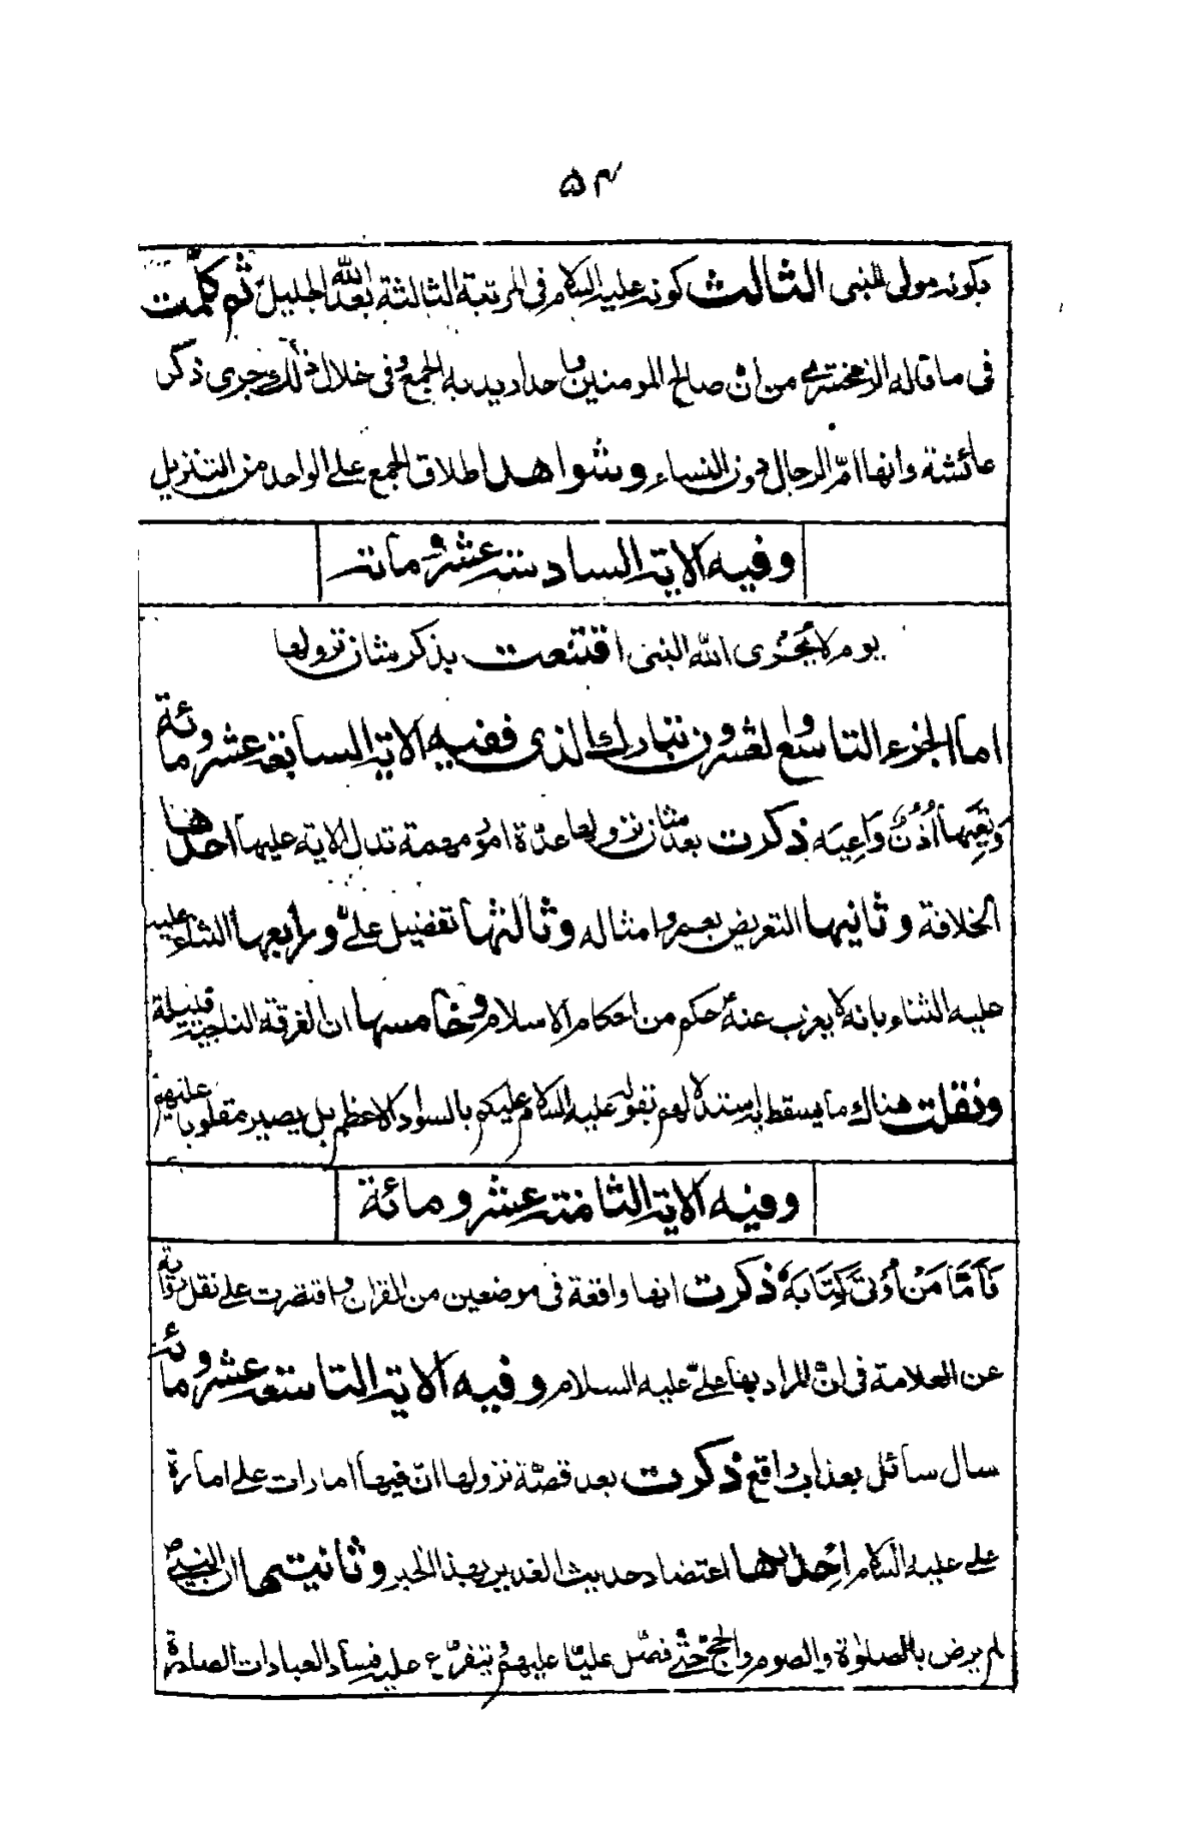 ۵۴
بكونه مولى للنبى الثالث كونه عليه السلام فى المرتبة الثالثة بعد الله الجليل ثم تكلمت
فى ما قاله الزمخشرى من ان صالح المومنين واحد اريد به الجمع وفى خلال ذلك جرى ذكر
عائشة وانها امّ الرجال دون النساء وشواهد اطلاق الجمع على الواحد من التنزيل
وفيه الاية السادسة عشر ومائة
يوم لا يُخْزى الله النبى اقتنعت بذكر شان نزولها
اما الجزء التاسع والعشرون تبارك الذى ففيه الاية السابعة عشر ومائة
وَتَعِيَها اُذُنٌ وَاعِيَه ذكرت بعد شان نزولها عدّة امور مهمة تدل الاية عليها احدها
الخلافة وثانيها التعريض بعمر وامثاله وثالثها تفضيل علىّ ورابعها الثناء عليه
عليه الثناء بانه لا يعزب عنه حكم من احكام الاسلام وخامسها ان الفرقة الناجية قليلة
ونقلت هناك ما يسقط به استدلالهم بقوله عليه السلام عليكم بالسواد الاعظم بل يصير مقلوبا عليهم
وفيه الاية الثامنة عشر ومائة
فَاَمَّا مَنْ اُوتِىَ كِتَابَهُ ذكرت انها واقعة فى موضعين من القران واقتصرت على نقل رواية
عن العلامة فى انّ المراد بها علىّ عليه السلام وفيه الاية التاسعة عشر ومائة
سال سائل بعذاب واقع ذكرت بعد قصّة نزولها انّ فيها امارات على امارة
على عليه السلام احدها اعتضاد حديث الغدير بهذا الخبر وثانيتها ان النبىّ ص
لم يرض بالصلوٰة والصوم والحجّ حتّى فضّل عليّا عليهم فيتفرّع عليه فساد العبادات الصادرة